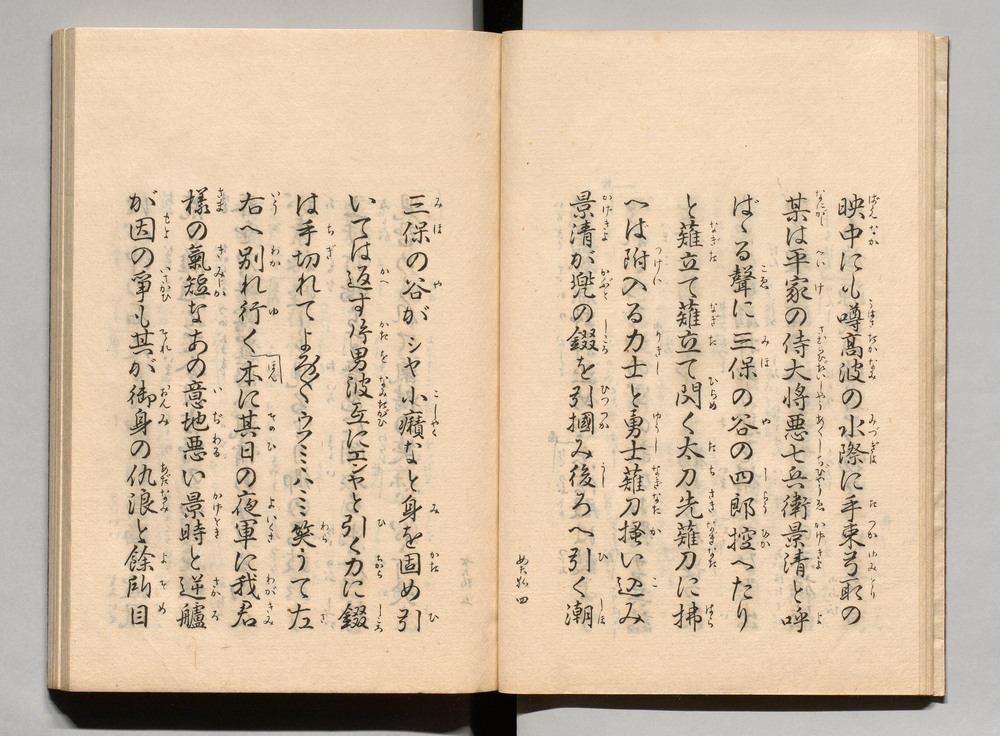 映中にも噂高波の水際に手束弓取の
某は平家の侍大将悪七兵衛景清と呼
ばゝる聲に三保の谷の四郎控へたり
と薙立て薙立て閃く太刀先薙刀に拂
へは附入る力士と勇士薙刀掻い込み
景清が兜の錣を引摑み後ろへ引く潮
めた始四
三保の谷がシヤ小癪なと身を固め引
いては返す片男波互にエンヤと引く力に錣
は手切れてよろ〳〵ウフミミハミ笑うて左
右へ別れ行く本に其日の夜軍に我君
樣の氣短なあの意地悪い景時と逆艫
が因の爭も其が御身の仇浪と餘所目